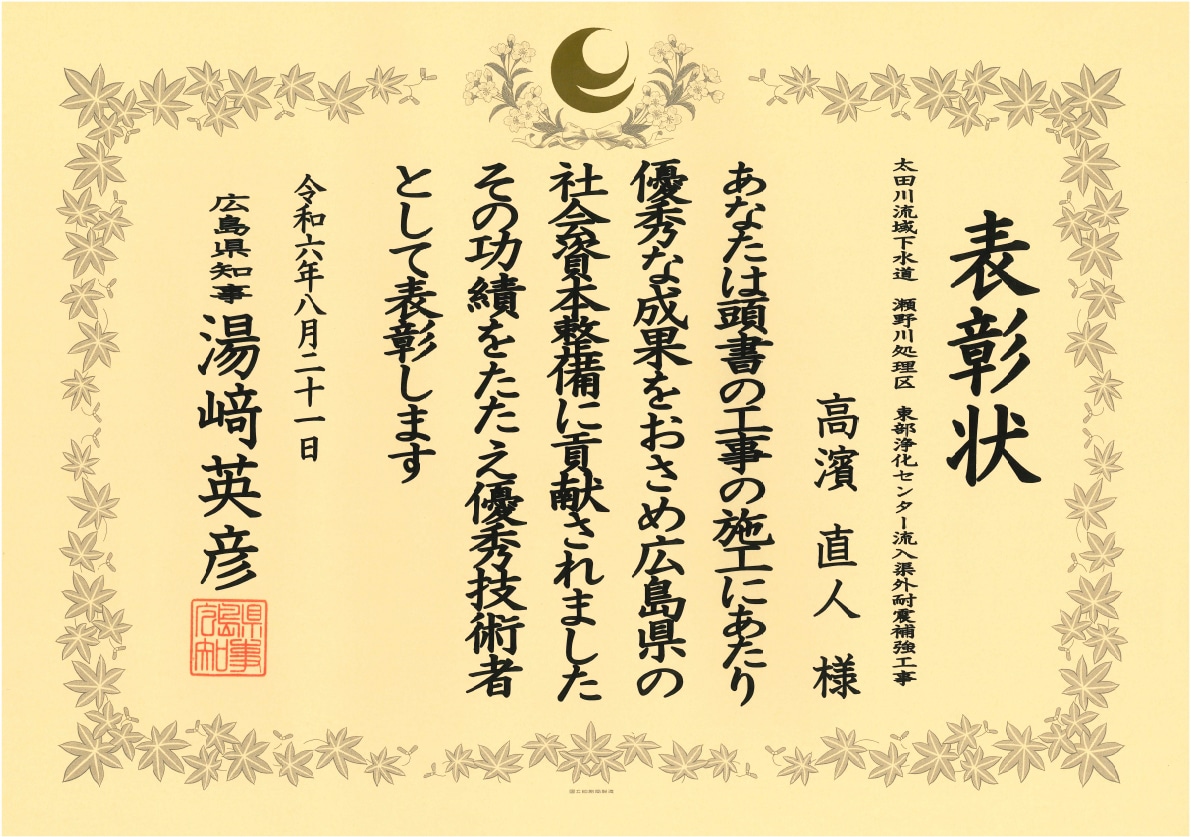 表彰状
太田川流域下水道　瀬野川処理区　東部浄化センター流入渠外耐震補強工事
高濱直人様
あなたは頭書の工事の施工にあたり
優秀な成果をおさめ広島県の
社会資本整備に貢献されました
その功績をたたえ優秀技術者
として表彰します
令和六年八月二十一日
広島県知事　湯﨑英彦
広島県知事